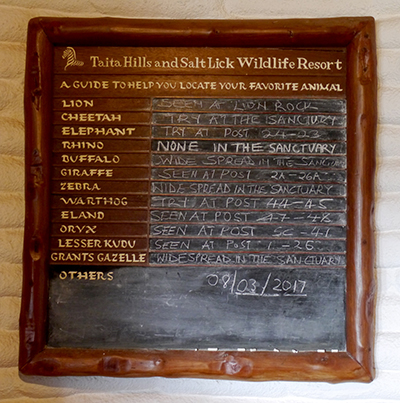 Taita Hills and Salt Lick Wildlife Resort
A GUIDE TO HELP YOU LOCATE YOUR FAVORITE ANIMAL
LION SEEN AT LION ROCK
CHEETAH TRY AT THE SANCTUARY
ELEPHANT TRY AT POST 24-23
RHINO NONE IN THE SANCTUARY
BUFFALO WIDE SPREAD IN THE SANCTUARY
GIRAFFE SEEN AT POST 2A-26A
ZEBRA WIDE SPREAD IN THE SANCTUARY
WARTHOG TRY AT POST 44-45
ELAND SEEN AT POST 47-48
ORYX SEEN AT POST 5C-41
LESSER KUDU SEEN AT POST 1-26
GRANTS GAZELLE WIDESPREAD IN THE SANCTUARY
OTHERS 08/03/2017